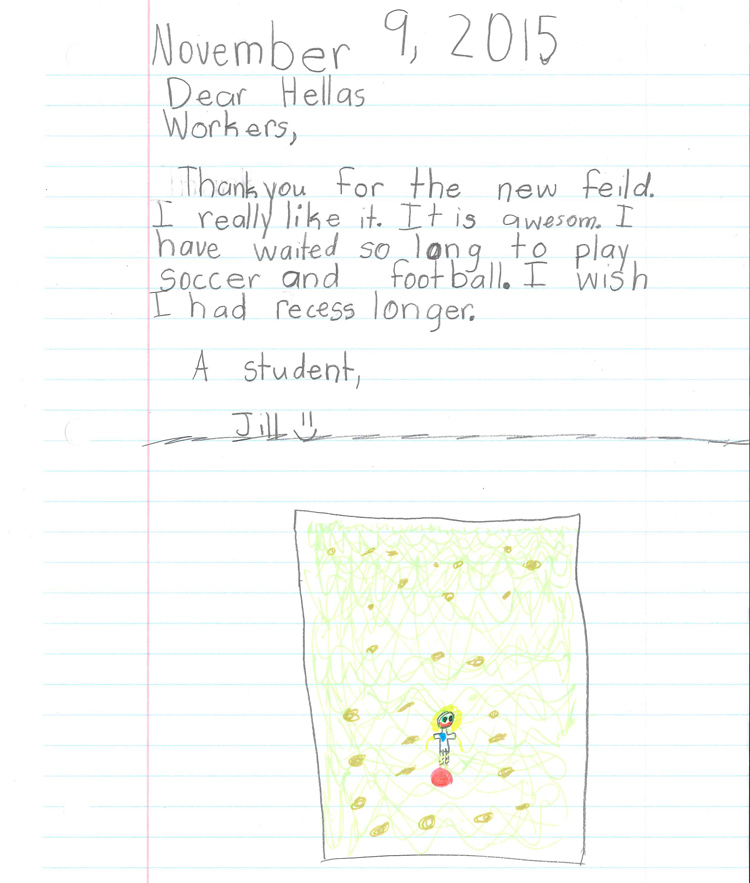 November 9, 2015
Dear Hellas
Workers,
Thank you for the new feild.
I really like it. It is awesom. I
have waited so long to play
soccer and football. I wish
I had recess longer.
A student,
Jill